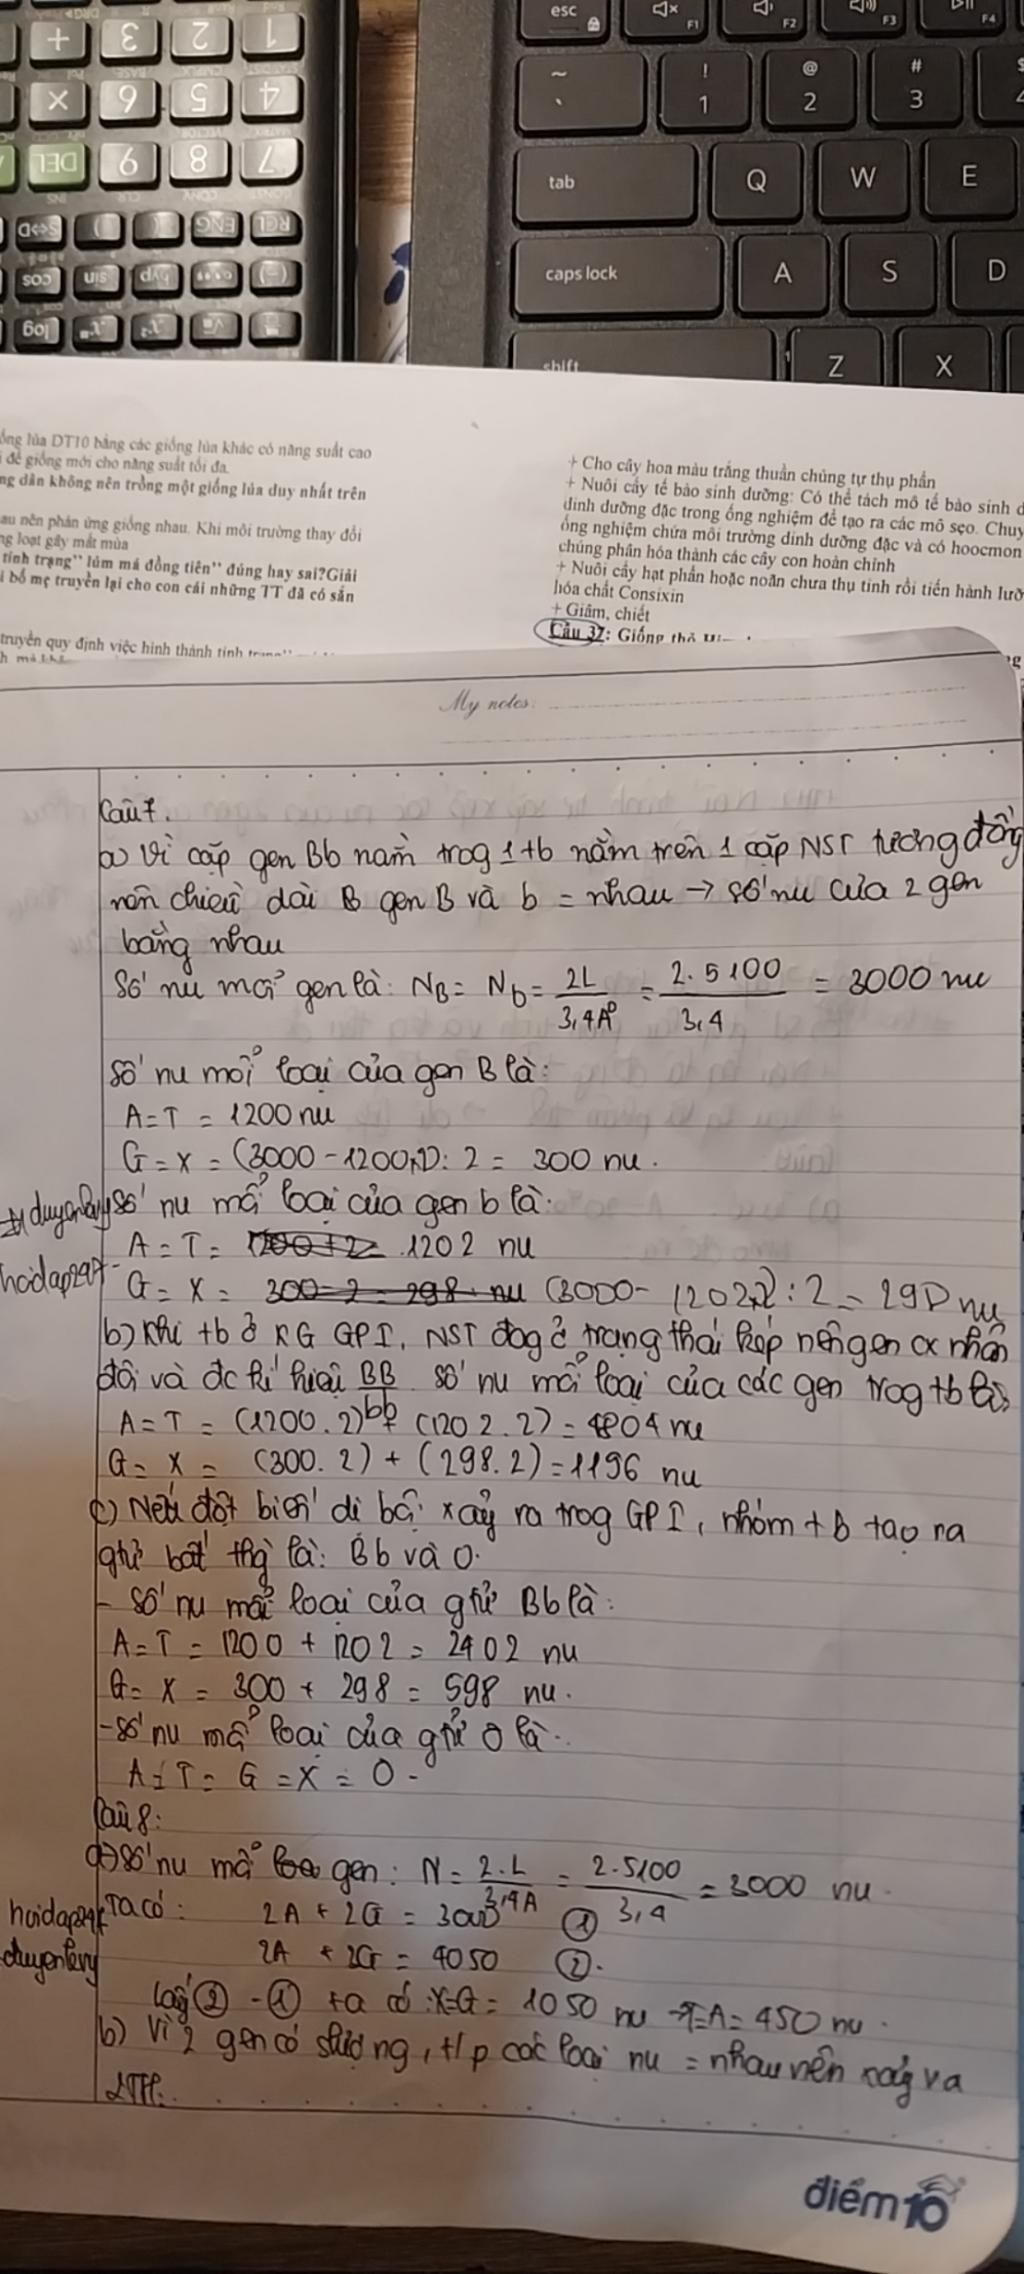 esc
F1
F2
F3
F4
~
`
!
1
@
2
#
3
tab
Q
W
E
caps lock
A
S
D
shift
Z
X
+
3
2
1
×
6
5
4
DEL
9
8
7
S⇔D
)
(
ENG
RCL
cos
sin
hyp
(−)
log
ống lúa DT10 bằng các giống lúa khác có năng suất cao
để giống mới cho năng suất tối đa.
ng dân không nên trồng một giống lúa duy nhất trên
au nên phản ứng giống nhau. Khi môi trường thay đổi
ng loạt gây mất mùa
tính trạng" lúm má đồng tiền" đúng hay sai?Giải
i bố mẹ truyền lại cho con cái những TT đã có sẵn
truyền quy định việc hình thành tính
+ Cho cây hoa màu trắng thuần chủng tự thụ phấn
+ Nuôi cấy tế bào sinh dưỡng: Có thể tách mô tế bào sinh d
dinh dưỡng đặc trong ống nghiệm để tạo ra các mô sẹo. Chuy
ống nghiệm chứa môi trường dinh dưỡng đặc và có hoocmon
chúng phân hóa thành các cây con hoàn chỉnh
+ Nuôi cấy hạt phấn hoặc noãn chưa thụ tinh rồi tiến hành lưỡ
hóa chất Consixin
+ Giâm, chiết
Câu 37: Giống thỏ
My notes:
Câu 7.
a) Vì cặp gen Bb nằm trog 1 tb nằm trên 1 cặp NST tương đồng
nên chiều dài B gen B và b = nhau → số nu của 2 gen
bằng nhau
Số nu mỗi gen là: NB = Nb = 2L / 3,4A⁰ = 2.5100 / 3,4 = 3000 nu
Số nu mỗi loại của gen B là:
A = T = 1200 nu
G = X = (3000 - 1200x2) : 2 = 300 nu.
duyenlevy Số nu mỗi loại của gen b là:
A = T = 1200+2= 1202 nu
hoidap247 G = X = 300 - 2 = 298 nu (3000 - 1202x2) : 2 = 298 nu
b) Khi tb ở KG GPI, NST đog ở trạng thái kép nên gen đx nhân
đôi và đc kí hiệu BB/bb Số nu mỗi loại của các gen trog tb là:
A = T = (1200.2) + (1202.2) = 4804 nu
G = X = (300.2) + (298.2) = 1196 nu
c) Nếu đột biến dị bội xảy ra trog GPI, nhóm tb tạo ra
gtử bất thg là: Bb và O.
- Số nu mỗi loại của gtử Bb là:
A = T = 1200 + 1202 = 2402 nu
G = X = 300 + 298 = 598 nu.
- Số nu mỗi loại của gtử O là:
A = T = G = X = 0.
Câu 8:
a) Số nu mỗi loạ gen: N = 2.L / 3,4A = 2.5100 / 3,4 = 3000 nu.
hoidap247 Ta có: 2A + 2G = 3000 ①
duyenlevy 2A + 3G = 4050 ②.
Lấy ② - ① ta có: X=G = 1050 nu → T=A = 450 nu.
b) Vì 2 gen có slượng, t/p các loại nu = nhau nên xảy ra
2TH:
điểm10